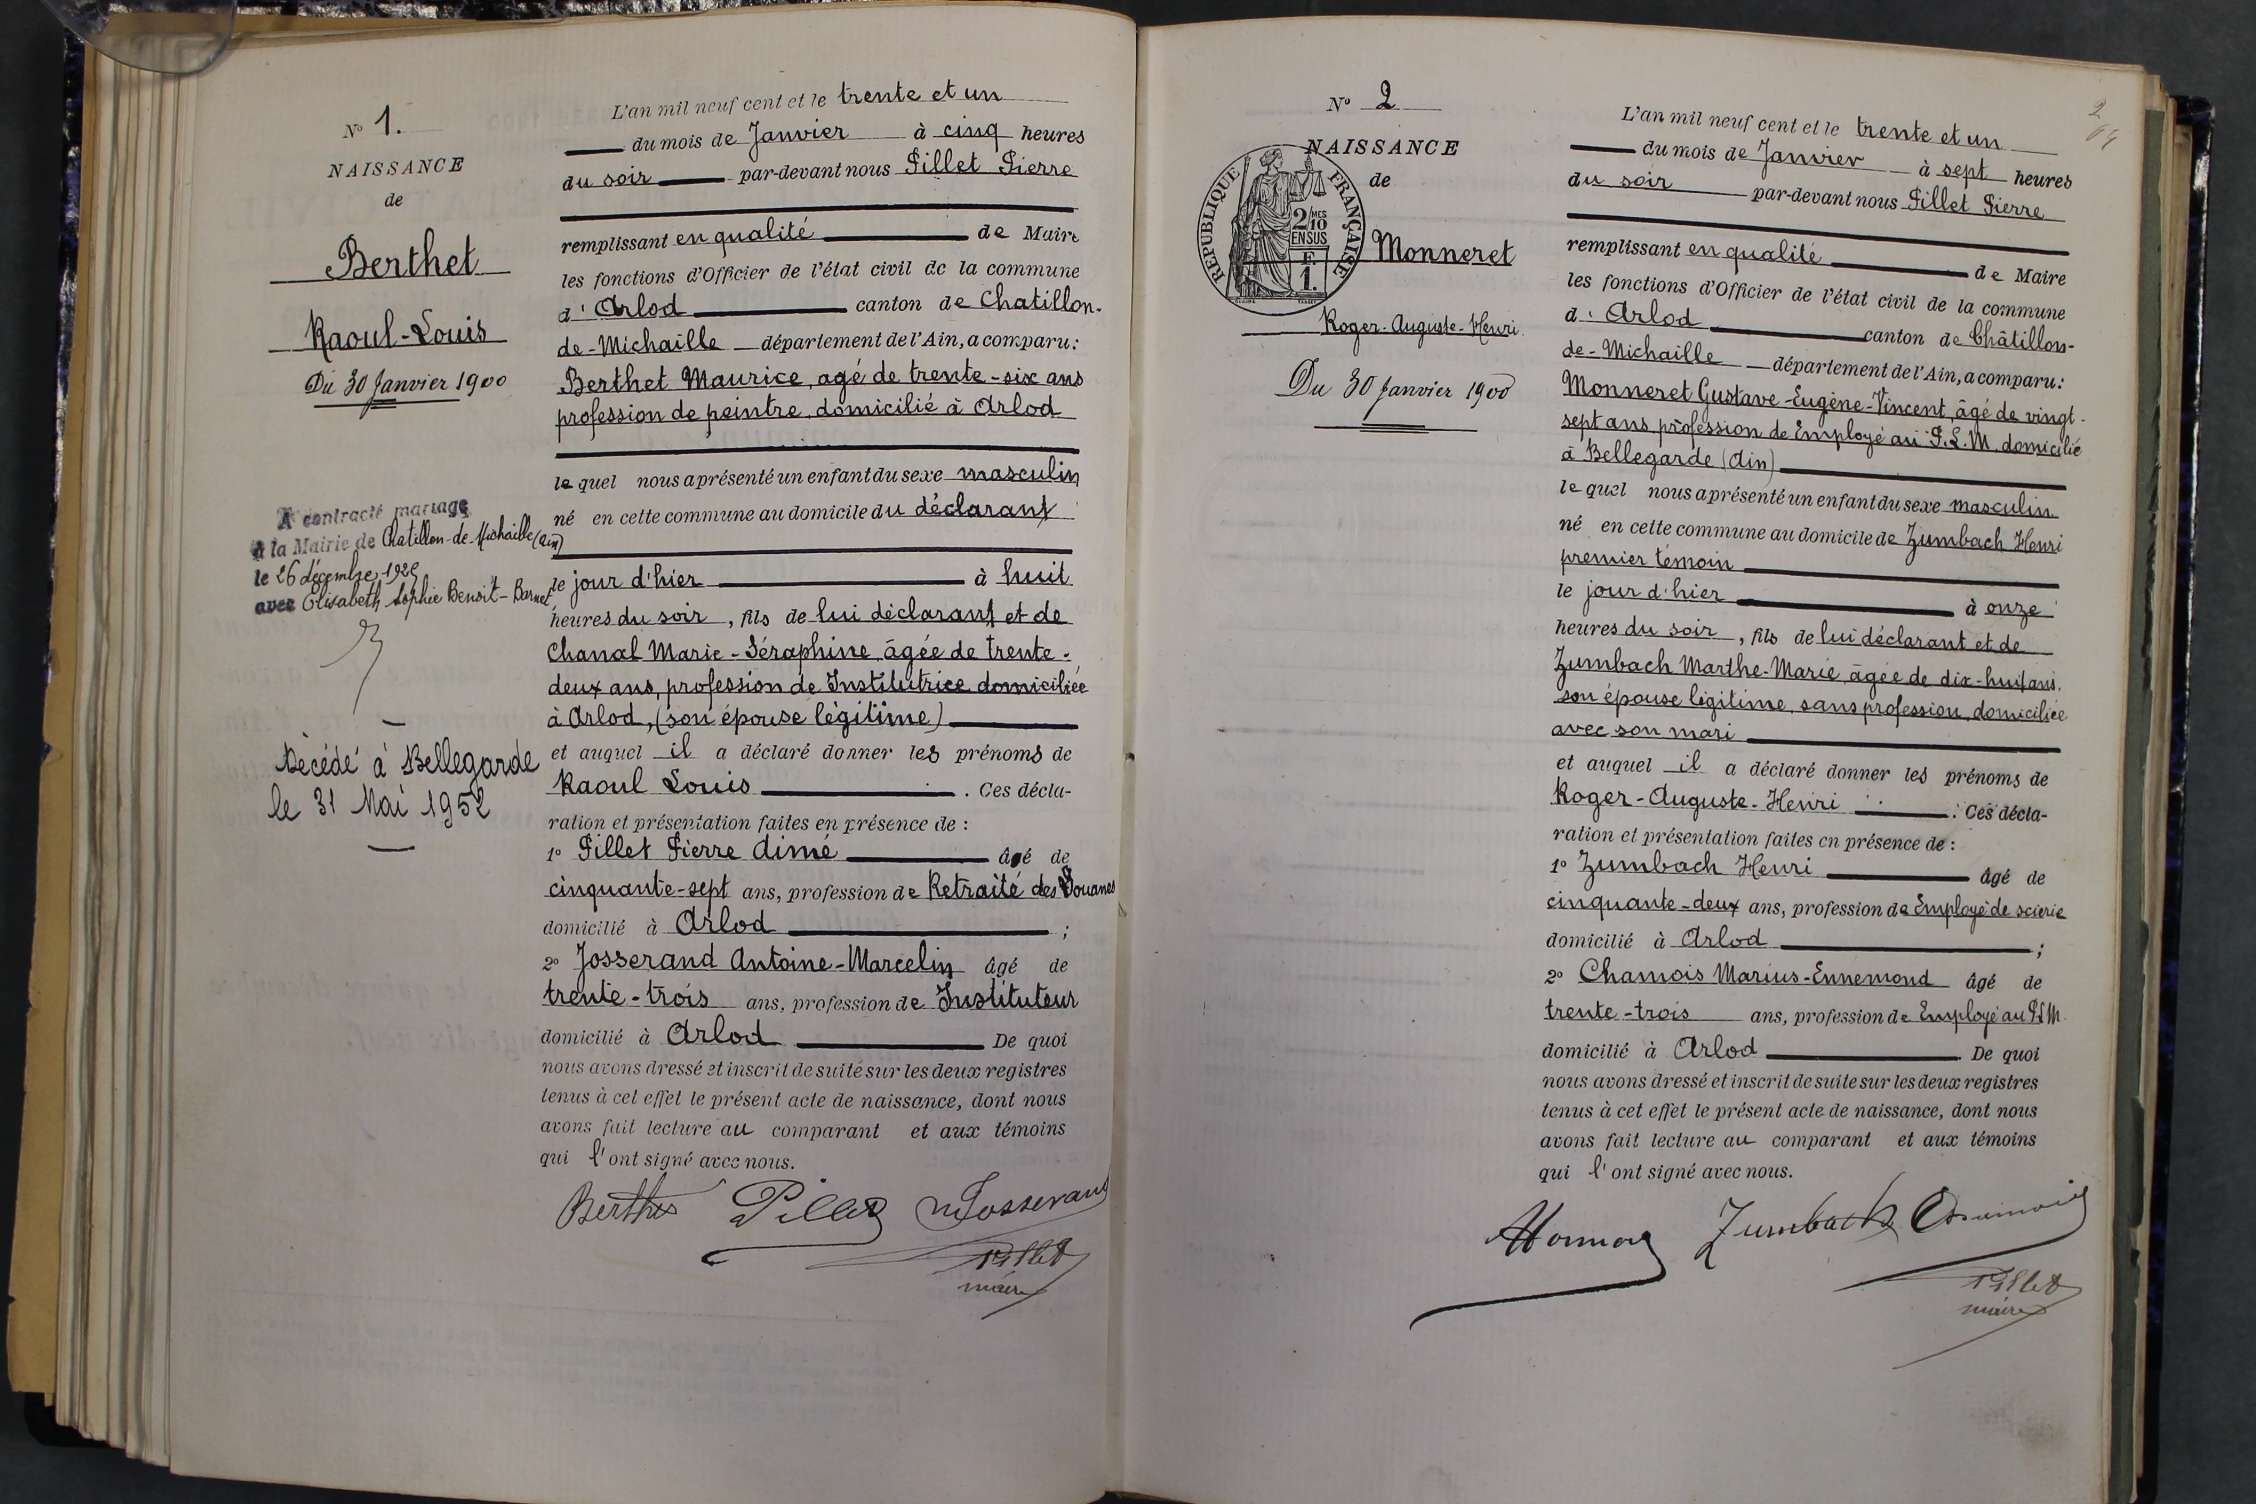 N° 1.
NAISSANCE
de
Berthet
Raoul-Louis
Du 30 Janvier 1900
A contracté mariage
à la Mairie de Chatillon-de-Michaille (Ain)
le 26 décembre 1925
avec Elisabeth Sophie Benoit-Barnet
Décédé à Bellegarde
le 31 Mai 1952
L'an mil neuf cent et le trente et un
du mois de Janvier à cinq heures
du soir par-devant nous Pillet Pierre
remplissant en qualité de Maire
les fonctions d'Officier de l'état civil de la commune
d' Arlod canton de Chatillon-
de-Michaille département de l'Ain, a comparu:
Berthet Maurice, agé de trente-six ans
profession de peintre, domicilié à Arlod
lequel nous a présenté un enfant du sexe masculin
né en cette commune au domicile du déclarant
le jour d'hier à huit
heures du soir, fils de lui déclarant et de
Chanal Marie-Séraphine âgée de trente-
deux ans, profession de Institutrice domiciliée
à Arlod, (son épouse légitime)
et auquel il a déclaré donner les prénoms de
Raoul Louis. Ces décla-
ration et présentation faites en présence de :
1° Pillet Pierre dimé âgé de
cinquante-sept ans, profession de Retraité des Douanes
domicilié à Arlod ;
2° Josserand Antoine-Marcelin âgé de
trente-trois ans, profession de Instituteur
domicilié à Arlod De quoi
nous avons dressé et inscrit de suite sur les deux registres
tenus à cet effet le présent acte de naissance, dont nous
avons fait lecture au comparant et aux témoins
qui l'ont signé avec nous.
Berthet Pillet Josserand
Pillet
maire
2
N° 2
NAISSANCE
de
RÉPUBLIQUE FRANÇAISE
2 MES
10
EN SUS
F.
1.
Monneret
Roger-Auguste-Henri
Du 30 Janvier 1900
L'an mil neuf cent et le trente et un
du mois de Janvier à sept heures
du soir par-devant nous Pillet Pierre
remplissant en qualité de Maire
les fonctions d'Officier de l'état civil de la commune
d' Arlod canton de Châtillon-
de-Michaille département de l'Ain, a comparu:
Monneret Gustave-Eugène-Vincent, âgé de vingt-
sept ans, profession de Employé au P.L.M. domicilié
à Bellegarde (Ain)
lequel nous a présenté un enfant du sexe masculin
né en cette commune au domicile de Zumbach Henri
premier témoin
le jour d'hier à onze
heures du soir, fils de lui déclarant et de
Zumbach Marthe-Marie, âgée de dix-huit ans,
son épouse légitime, sans profession, domiciliée
avec son mari
et auquel il a déclaré donner les prénoms de
Roger-Auguste-Henri. Ces décla-
ration et présentation faites en présence de :
1° Zumbach Henri âgé de
cinquante-deux ans, profession de Employé de scierie
domicilié à Arlod ;
2° Chamois Marius-Ennemond âgé de
trente-trois ans, profession de Employé au PLM
domicilié à Arlod De quoi
nous avons dressé et inscrit de suite sur les deux registres
tenus à cet effet le présent acte de naissance, dont nous
avons fait lecture au comparant et aux témoins
qui l'ont signé avec nous.
Zumbach Chamois
Pillet
maire